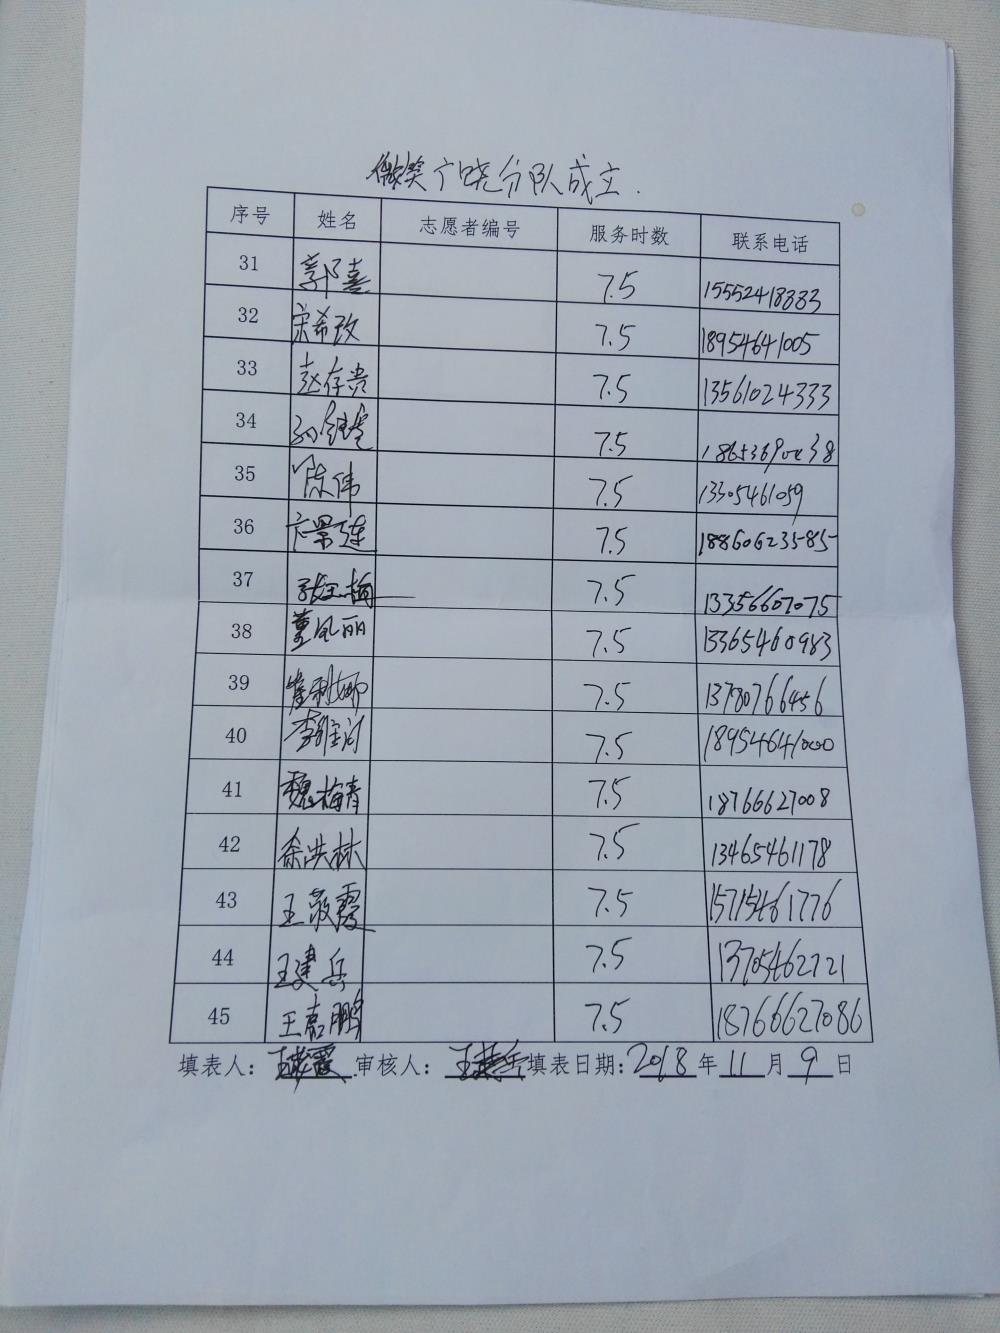 微笑广饶分队成立.
序号 姓名 志愿者编号 服务时数 联系电话
31 郭喜 7.5 15552418383
32 宋希政 7.5 18954641005
33 赵存贵 7.5 13561024333
34 7.5
35 陈伟 7.5 13305461059
36 卞景连 7.5 18860623585
37 张玉梅 7.5 13356607075
38 董凤丽 7.5 13365460983
39 崔利娜 7.5 13780766456
40 7.5 18954641000
41 魏梅青 7.5 18766627008
42 徐洪林 7.5 13465461178
43 王敬霞 7.5 15715461776
44 王建兵 7.5 13705462721
45 王嘉鹏 7.5 18760627086
填表人: 王敬霞 审核人: 填表日期: 2018 年 11 月 9 日